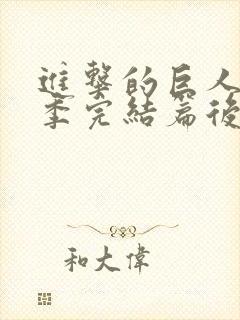 進擊的巨人
季完結篇後
和大偉